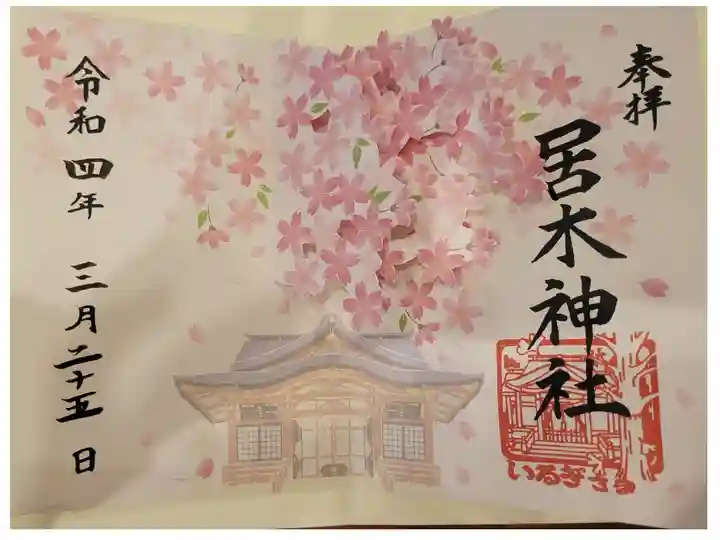 奉拝
居木神社
いるぎさま
令和四年 三月二十五日